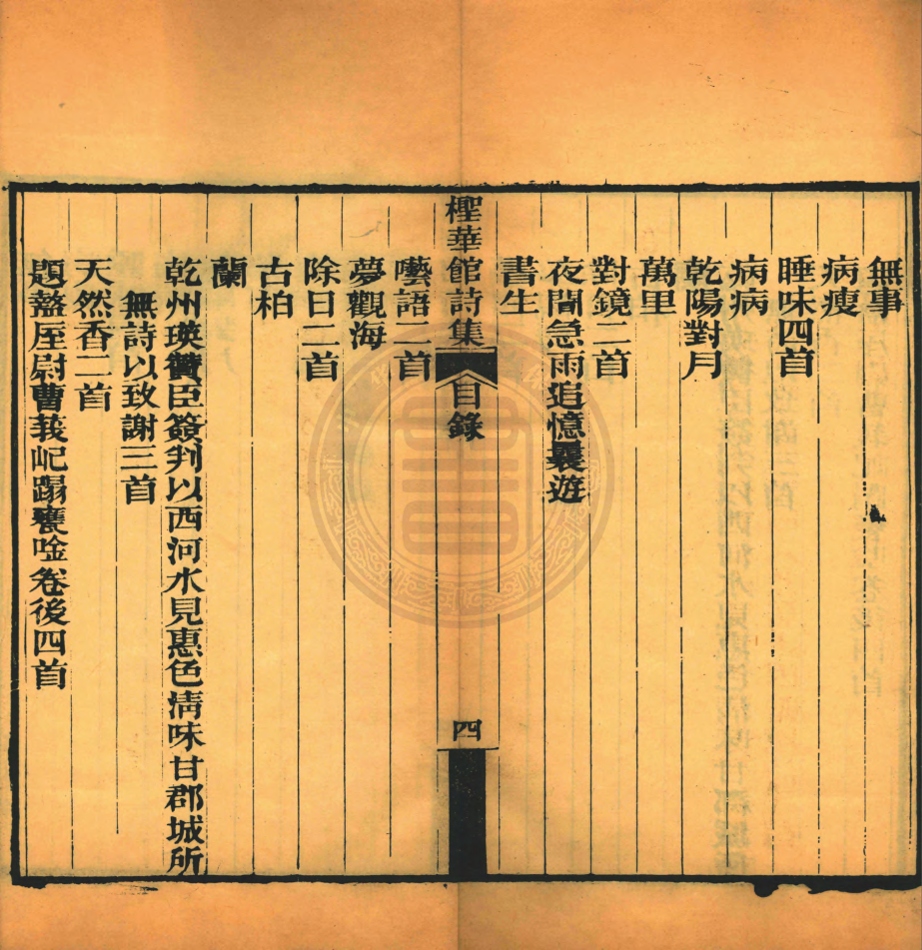 無事
病瘦
睡味四首
病病
乾陽對月
萬里
對鏡二首
夜間急雨追憶曩遊
書生
檉華館詩集 目錄 四
囈語二首
夢觀海
除日二首
古柏
蘭
乾州瑛贊臣簽判以西河水見惠色淸味甘郡城所
無詩以致謝三首
天然香二首
題盩厔尉曹莪屺蹋甕唫卷後四首